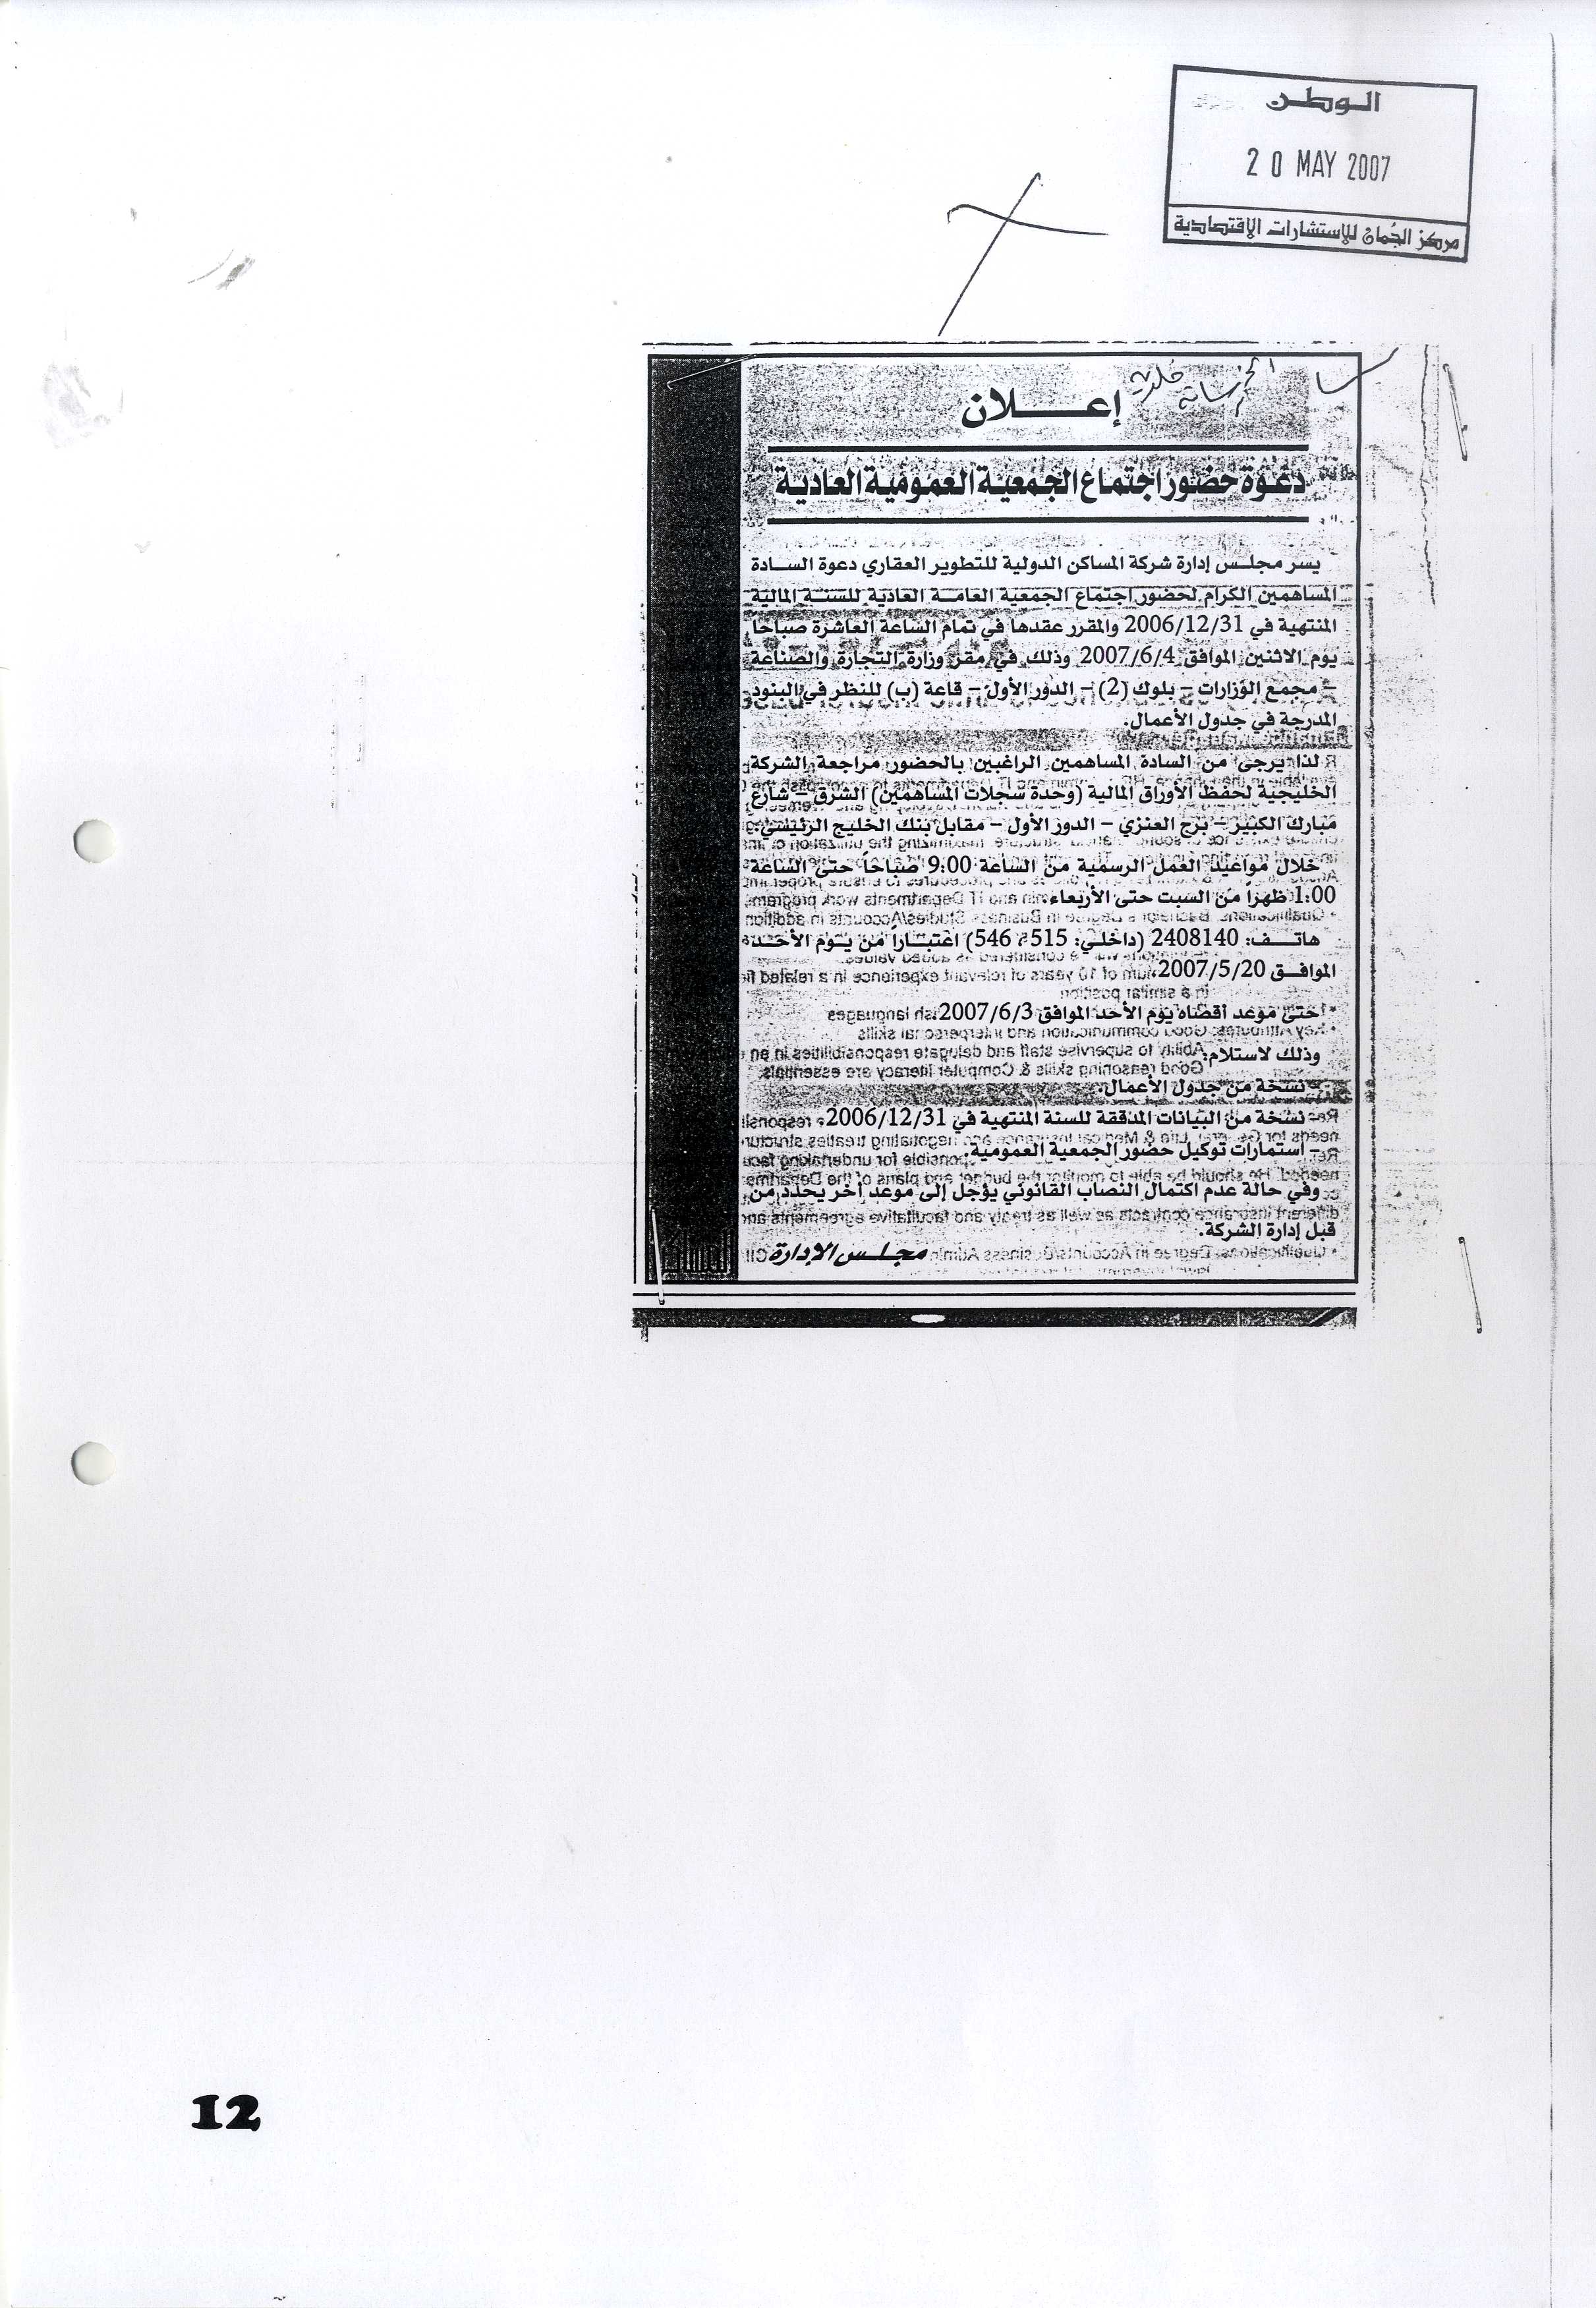 الوطن
20 MAY 2007
مركز الجُمان للإستشارات الإقتصادية
إعـــلان
دعوة حضور اجتماع الجمعية العمومية العادية
يسر مجلس إدارة شركة المساكن الدولية للتطوير العقاري دعوة السادة
المساهمين الكرام لحضور اجتماع الجمعية العامة العادية للسنة المالية
المنتهية في 2006/12/31 والمقرر عقدها في تمام الساعة العاشرة صباحاً
يوم الاثنين الموافق 2007/6/4 وذلك في مقر وزارة التجارة والصناعة
– مجمع الوزارات – بلوك (2) – الدور الأول – قاعة (ب) للنظر في البنود
المدرجة في جدول الأعمال.
لذا يرجى من السادة المساهمين الراغبين بالحضور مراجعة الشركة
الخليجية لحفظ الأوراق المالية (وحدة سجلات المساهمين) الشرق – شارع
مبارك الكبير – برج العنزي – الدور الأول – مقابل بنك الخليج الرئيسي
خلال مواعيد العمل الرسمية من الساعة 9:00 صباحاً حتى الساعة
1:00 ظهراً من السبت حتى الأربعاء
هاتف: 2408140 (داخلي: 515، 546) اعتباراً من يوم الأحد
الموافق 2007/5/20
حتى موعد أقصاه يوم الأحد الموافق 2007/6/3
وذلك لاستلام:
– نسخة من جدول الأعمال.
– نسخة من البيانات المدققة للسنة المنتهية في 2006/12/31
– استمارات توكيل حضور الجمعية العمومية.
وفي حالة عدم اكتمال النصاب القانوني يؤجل إلى موعد آخر يحدد من
قبل إدارة الشركة.
مجلس الإدارة
12